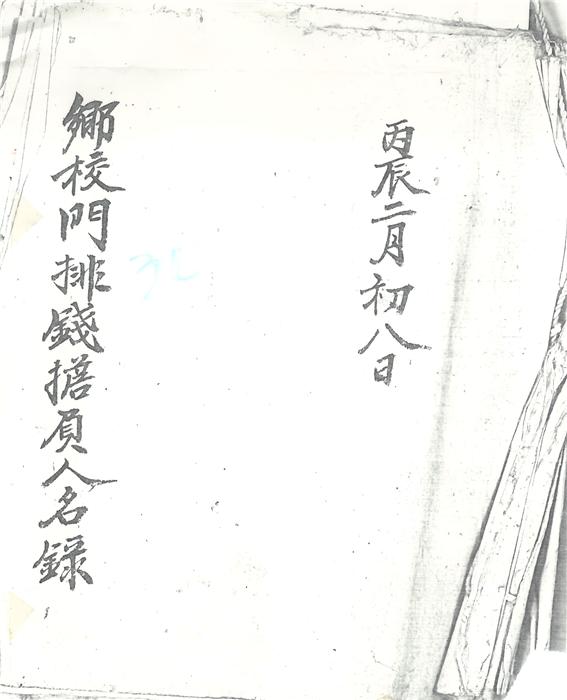 丙辰二月初八日
鄉校門排錢擔負人名錄